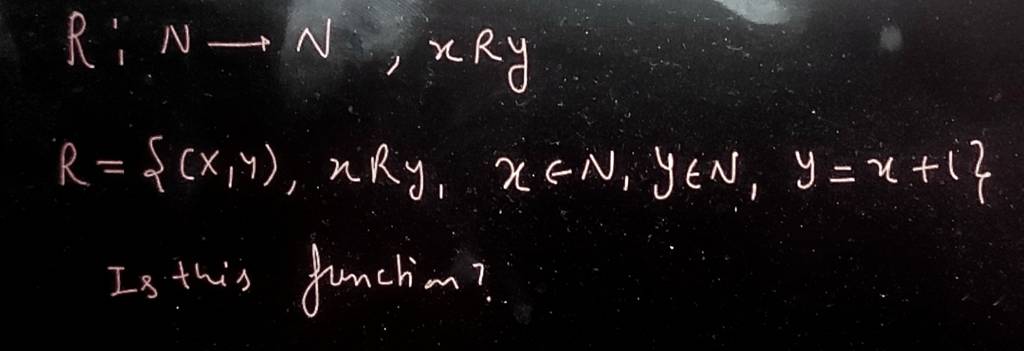 R : N → N , xRy
R = {(x,y), xRy, x ∈ N, y ∈ N, y = x + 1}
Is this function?